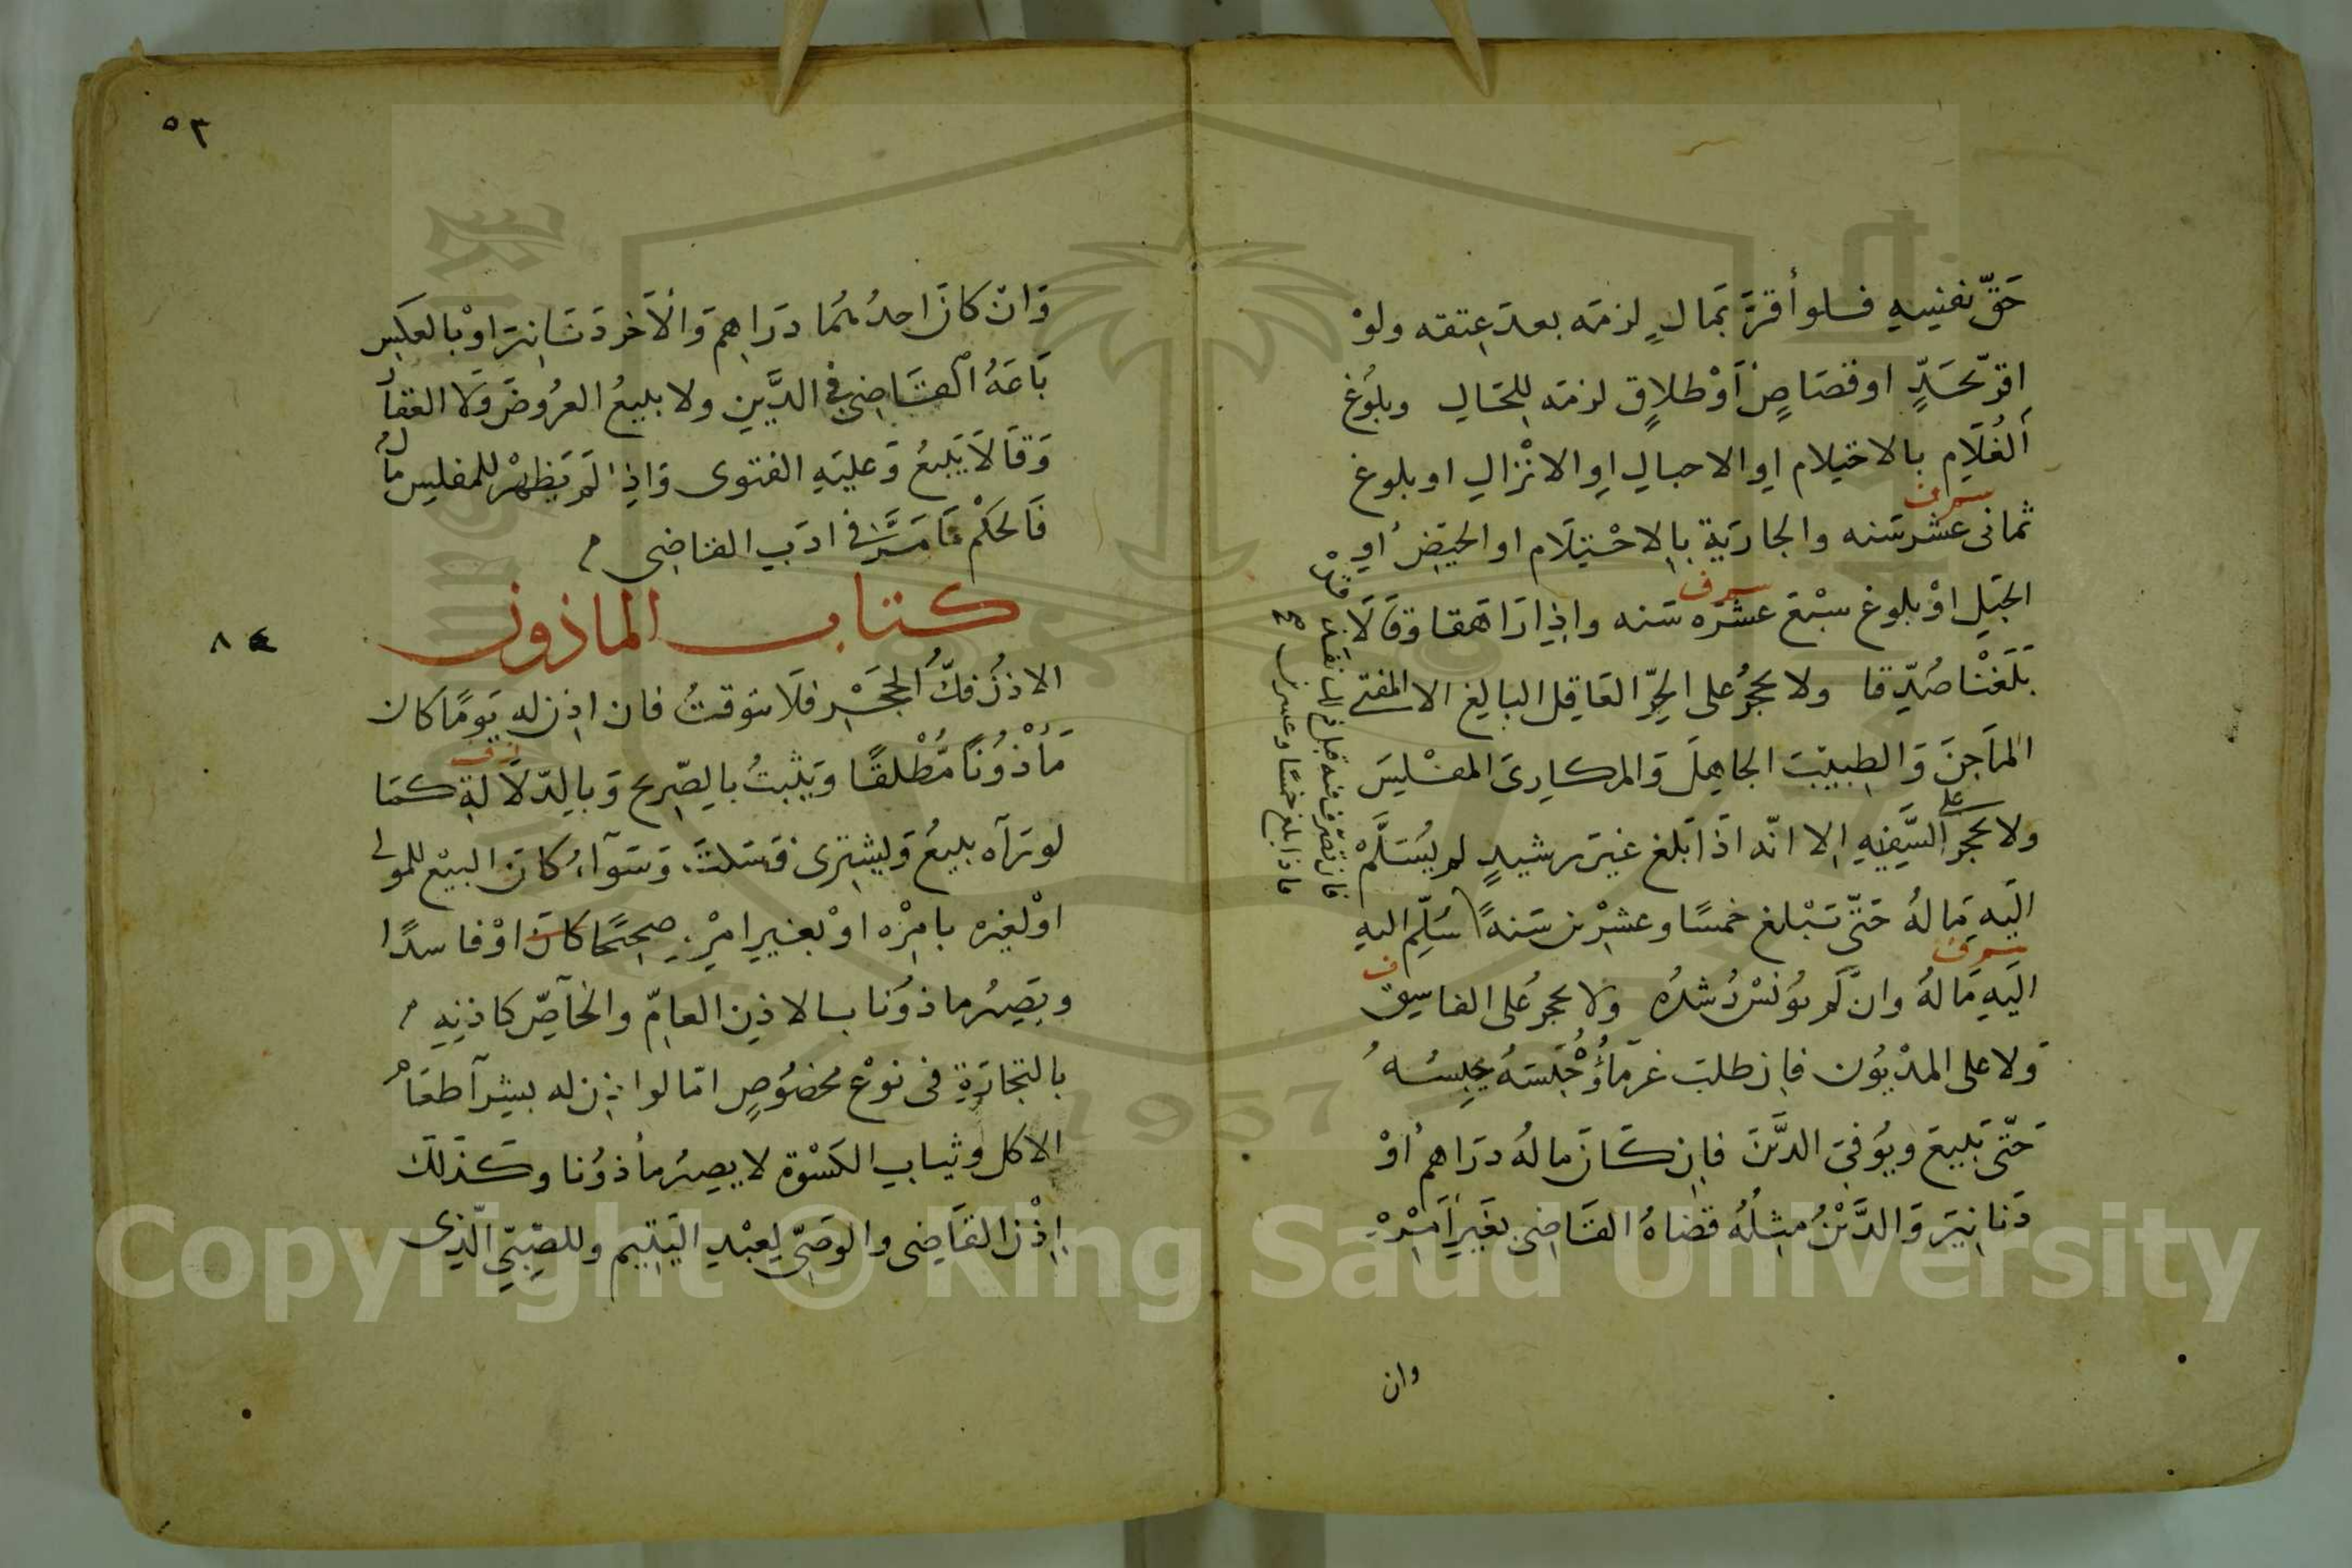 حَقّ نفسِهِ فلو أقرَّ بمالٍ لزمَه بعدَ عِتقه ولوْ
اقرّ بحَدٍّ او قصَاصٍ أوْ طلاقٍ لزمَه لِلحَالِ وبلُوغ
الغُلَامِ بالاحتِلام او الاحبالِ او الانْزالِ او بلوغ
سرف
ثمانى عشر سَنه والجاريَة بالاحْتِلَام او الحَيضِ او
سرف
الحبَلِ اوْ بلوغ سبْعَ عشرَه سَنه واذا رَاهَقا وَقَالَا
بَلَغْنَا صُدِّقا ولا يحجُرُ على الحُرِّ العَاقِل البالغِ الا المفتى
المَاجنَ وَالطبِيبَ الجاهِلَ وَالمكارِىَ المفْلِسَ
ولا يحجر على السَّفِيهِ الا انّه اذَا بَلغ غيرَ رشيدٍ لم يُسَلَّمْ
اليَهِ مَالهُ حَتّى يَبْلغ خمسًا وعشرْين سَنهً سُلِّم اليهِ
سرف
ف
اليَهِ مَالهُ وان لَم يُونَسْ رُشدُه ولا يحجر عُلى الفاسِق
وَلا على المدْيُون فان طلبَ غرمَاؤُهُ حَبْسَهُ يحبِسُهُ
حَتّى يَبيعَ ويُوفىَ الدَّينَ فان كَانَ مالهُ درَاهم اوْ
دَنانيَر وَالدَّيْنُ مثِلُهُ قضاهُ القَاضِى بغيرِ أَمْرِهْ
فان تصرّف فيه قبل ذلك نفذ
فاذا بلغ خمسًا وعشرين صح
وان
٥٣
وَان كانَ احدُهُمَا درَاهِمَ وَالآخر دَنَانِيرَ اوْ بالعكسِ
بَاعَهُ القَاضِى فى الدَّينِ ولا يبيعُ العرُوضَ وَلا العقار
وَقَالَا يَبيعُ وَعليَهِ الفتوى وَاذِا لَم يَظهرْ للمفلِس مال
فَالحكْم مَا مَرَّ فى ادَب القاضِى
كتاب الماذون
٨
الاذنُ فكُّ الحجْرِ فلا يتوقتُ فان اذِن له يَومًا كان
مَأْذُونًا مُطْلقًا ويَثْبتُ بالصّريح وَبالدّلَالَةِ كمَا
لو رَآه يبيعُ وَيشترى فَسَكتَ وَسَوآءٌ كانَ البيْع للمولى
اوْ لغيرَه بامرْه اوْ بغيرِ امرِه صحِيحًا كانَ اوْ فاسدًا
ويَصِيرُ ماذوُنا بالاذنِ العامّ والخآصّ كاذنِهِ
بالتجارَةِ فى نوْع مخصُوصٍ امّا لو اذن له بشرآ طعَام
الاكل وثيابِ الكسْوة لا يصيرُ مأذوُنا وكَذلك
اِذْن القاضِى والوَصِّى لِعبْدِ اليَتيم وللصَبِّى الّذِى